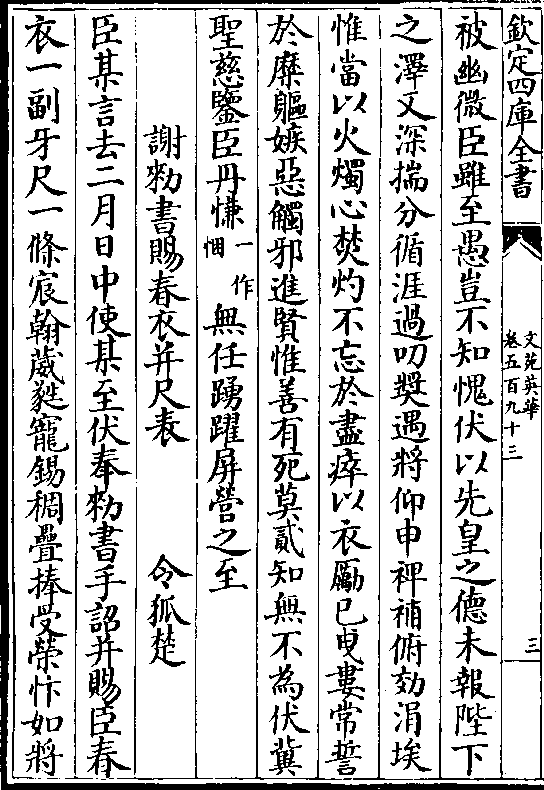 欽定四庫全書
文苑英華
卷五百九十三
三
被幽微臣雖至愚豈不知愧伏以先皇之德未報陛下
之澤又深揣分循涯過叨奬遇將仰申裨補俯効涓埃
惟當以火燭心焚灼不忘於盡瘁以衣勵已曳婁常誓
於糜軀嫉惡觸邪進賢惟善有死莫貳知無不為伏冀
聖慈鑒臣丹慊一作悃無任踴躍屏營之至
謝勑書賜春衣并尺表 令狐楚
臣某言去二月日中使某至伏奉勑書手詔并賜臣春
衣一副牙尺一條宸翰葳蕤寵錫稠疊捧受榮忭如將